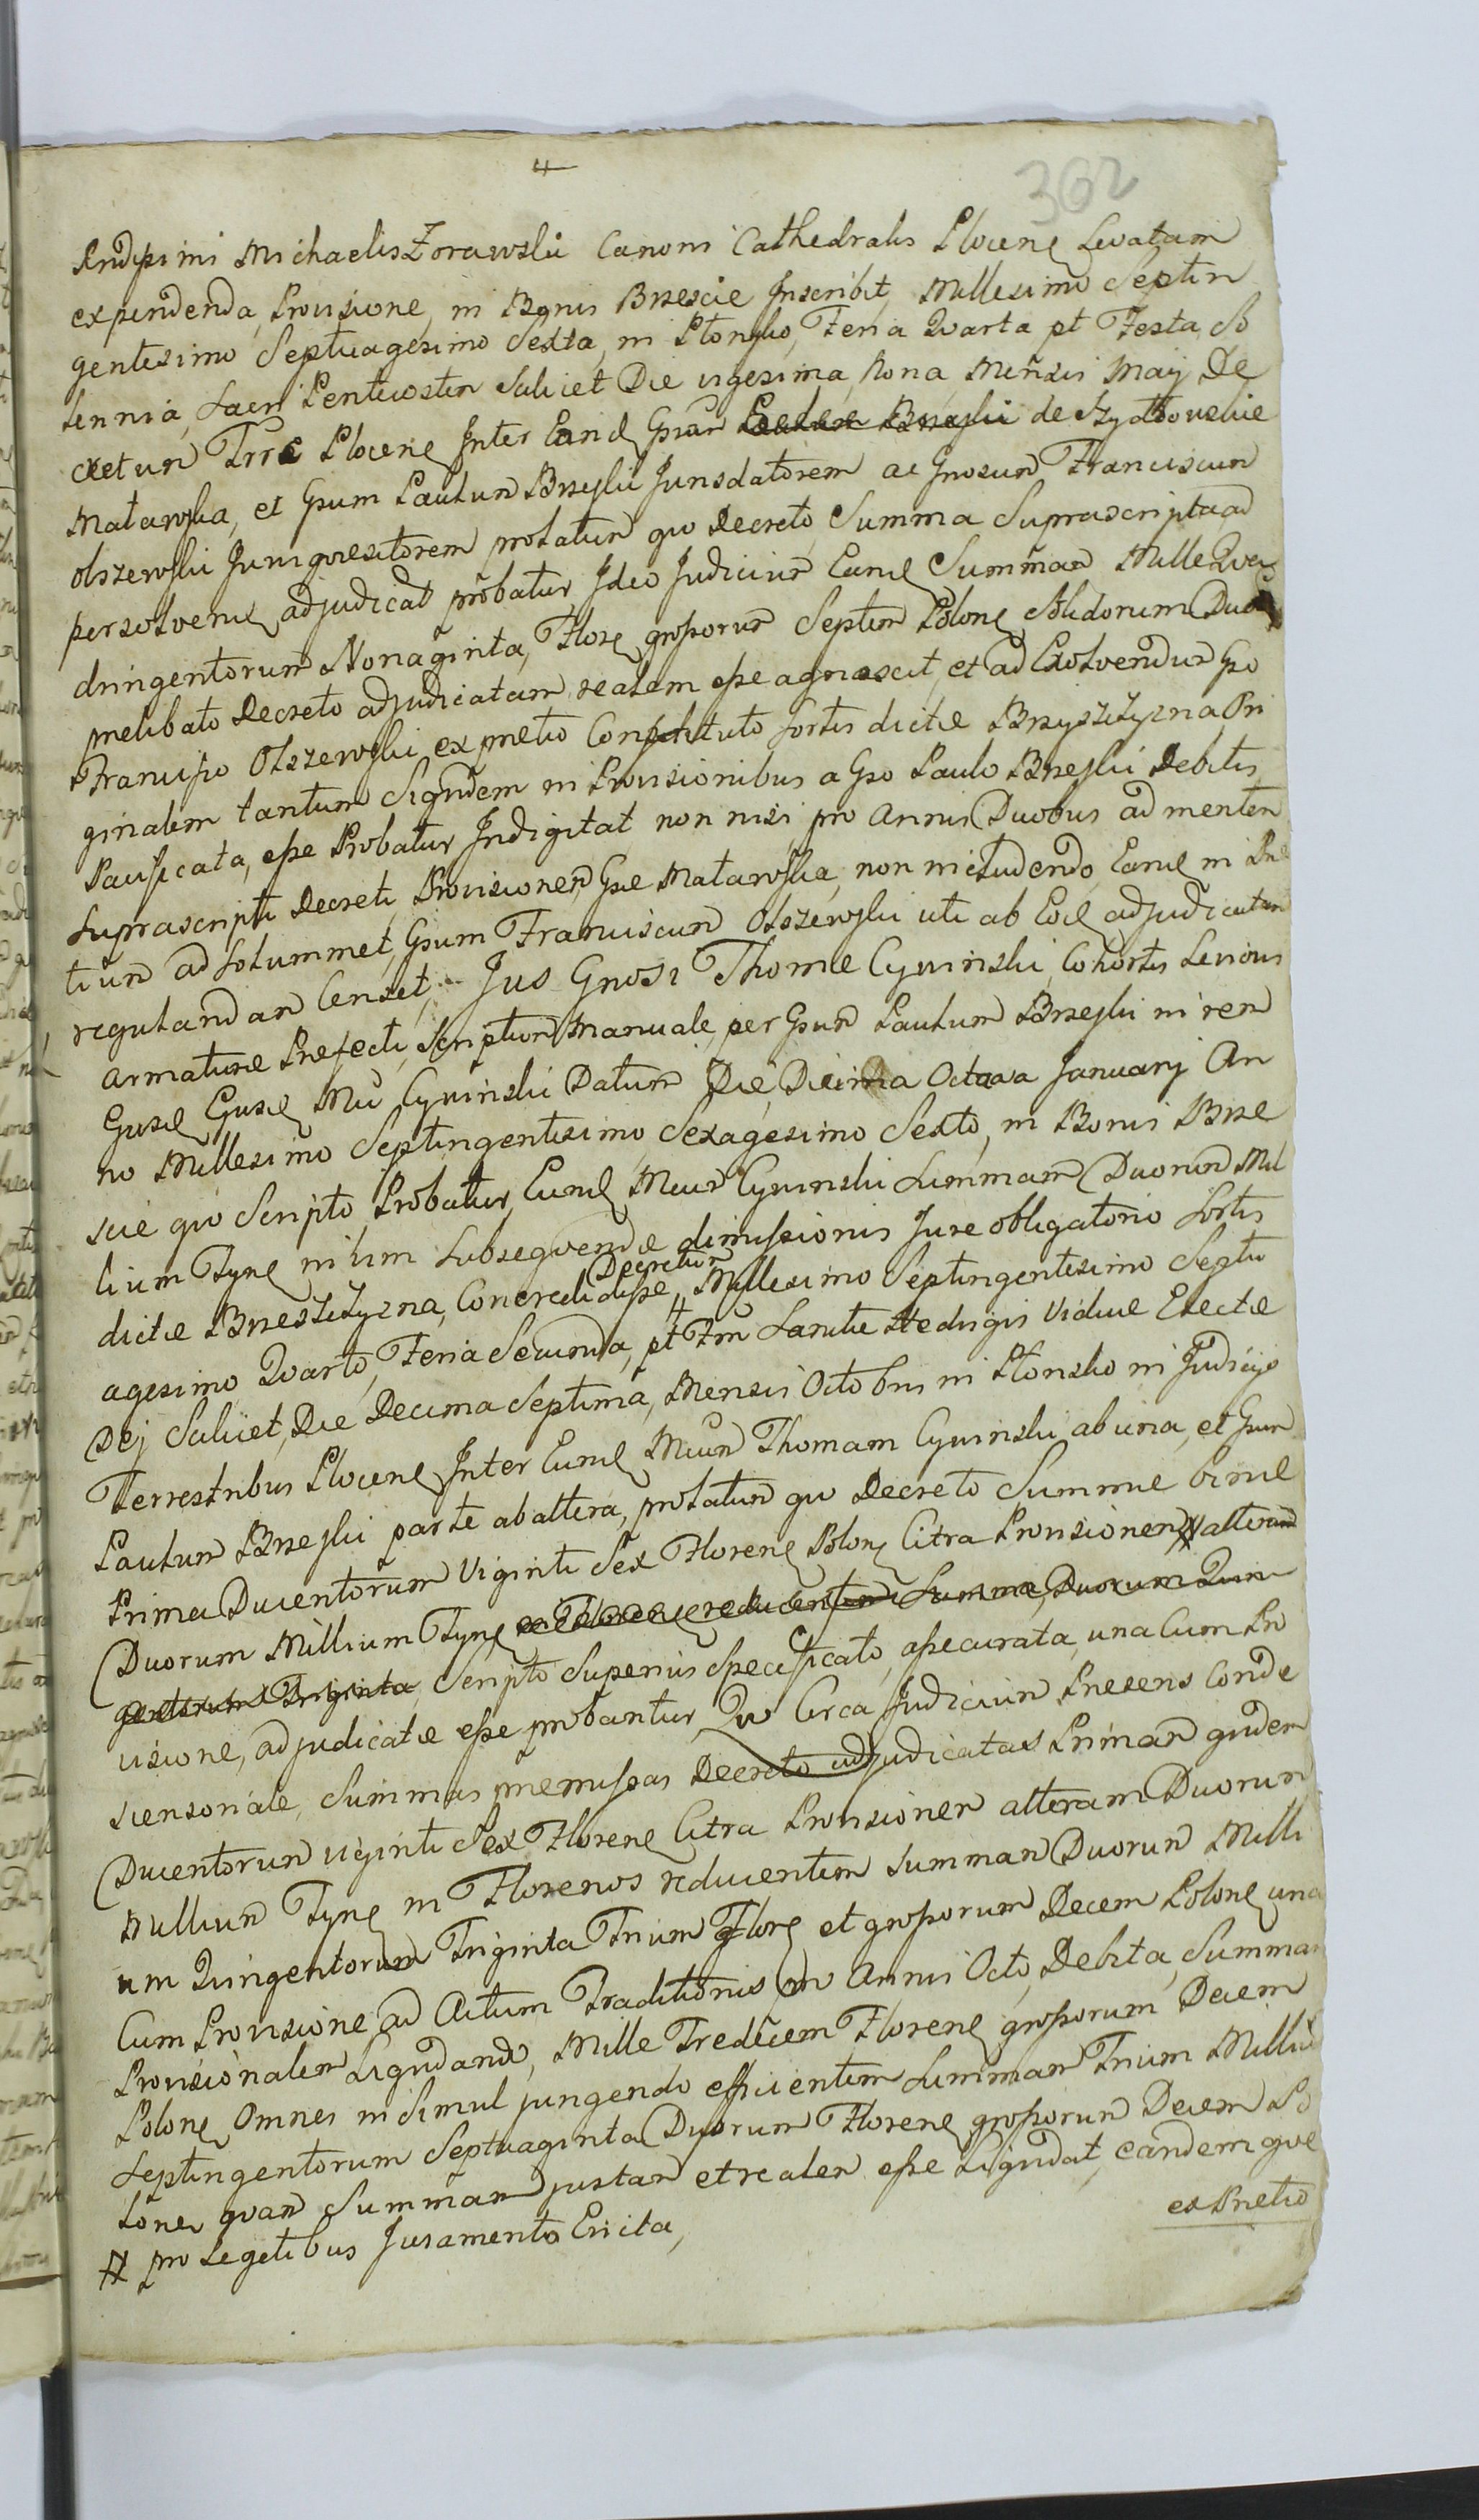 4
362
Rndissimi Michaelis Zorawski Canoni Cathedralis Plocens Levatam
expendenda, Provisione, in Bonis Brzescie Inscribit, Millesimo Septin
gentesimo Septuagesimo Sexto, in Plonsko, Feria Qvarta pt Festa So
lennia, Sacri Pentecosten Scilicet Die vigesima Nona Mensis Maij De
cretum Trrse Plocens Inter Eand Gsam de Szydlowskie
Matawska, et Gsum Paulum Brzeski Jurisdatorem ac Gnosum Franciscum
Olszewski Juriqvesitorem prolatum quo Decreto Summa Suprascripta ad
persolvend, adjudicat probatur Ideo Judicium Eand Summam Mille Qva
dringentorum Nonaginta, Flore, grossorum Septem Polone Solidorum Duo
prelibato Decreto adjudicatam realem esse agnoscit, et ad Exolvendum Gso
Francisco Olszewski ex pretio Constituto sortis dictæ Brzyszczyzna, Pri
ginalem tantum Siqvdem in Provisionibus a Gso Paulo Brzeski Debitis
Pacificata, esse Probatur Indigitat non nisi pro Annis Duobus ad mentem
Suprascripti Decreti, Provisionem Gsæ Matawska, non includendo, Eand in Pre
tium ad solummet, Gsum Franciscum Olszewski uti ab Eod adjudicatam
regulandam Censet, Jus Gnosi Thomæ Cywinski, Cohortis Levioris
Armaturæ Præfecti, Scriptum Manuale, per Gsum Paulum Brzeski in rem
Gusd Mci Cywinski Datum Die Decima Octava Januarij An
no Millesimo Septingentesimo, Sexagesimo Sexto, in Bonis Brze
scie quo Scripto Probatur, Eund Mcum Cywinski Summam Duorum Mil
lium Tyne in vim Subseqvendæ dimissionis Jure obligatorio Sortis
dictæ Brzeszczyzna, Concredidisse, Decretum Millesimo Septingentesimo Septu
agesimo Qvarto, Feria Secunda, pt Fm Sanctæ Hedvigis Viduæ Electæ
Dej Scilicet, Die Decima Septima, Mensis Octobris in Plonsko in Judicijs
Terrestribus Plocens Inter Eund Mcum Thomam Cywinski, ab una, et Gsum
Paulum Brzeski parte ab altera, prolatum quo Decreto Summæ binæ
Prima Ducentorum Viginti Sex Florene Polone Citra Provisionem # alterum
Duorum Millium Tyne in Florenos reducentem Summa, Duorum Quin
gentorum Triginta, Scripto Superius Specificato, assecurata, una Cum Pro
visione, adjudicatæ esse probantur, Quo Circa Judicium Presens Conde
scensoriale, Summas premissas Decreto adjudicatas Primam qvidem
Ducentorum viginti Sex Florene Citra Provisionem alteram Duorum
Millium Tyne in Florenos reducentem Summam Duorum Milli
um Qvingentorum Triginta Trium Flore et grossorum Decem Polone una
Cum Provisione ad Actum Traditionis pro Annis Octo, Debita, Summam
Provisionalem Liqvdando, Mille Tredecem Florene, grossorum Decem
Polone, Omnes in Simul jungendo efficientem Summam Trium Millium
Septingentorum Septuaginta Duorum Florene grossorum Decem Po
lone, qvam Summam justam et realem esse Liqvdat, eandemqve
ex Pretio
# pro Legetibus Juramento Evicta,